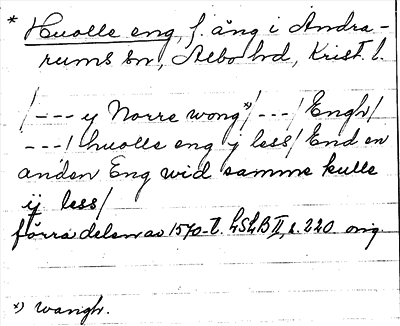 * Huolle eng, f. äng i Andra-
rums sn, Albo hd, Krist. l.
/--- y Norre wong*)/---/Engh/
---/ huolle eng y less/ End en
anden Eng wid samme kulle
ij less/
förra delen av 1570-t. LSLB II, s. 220 orig.
*) wangh.